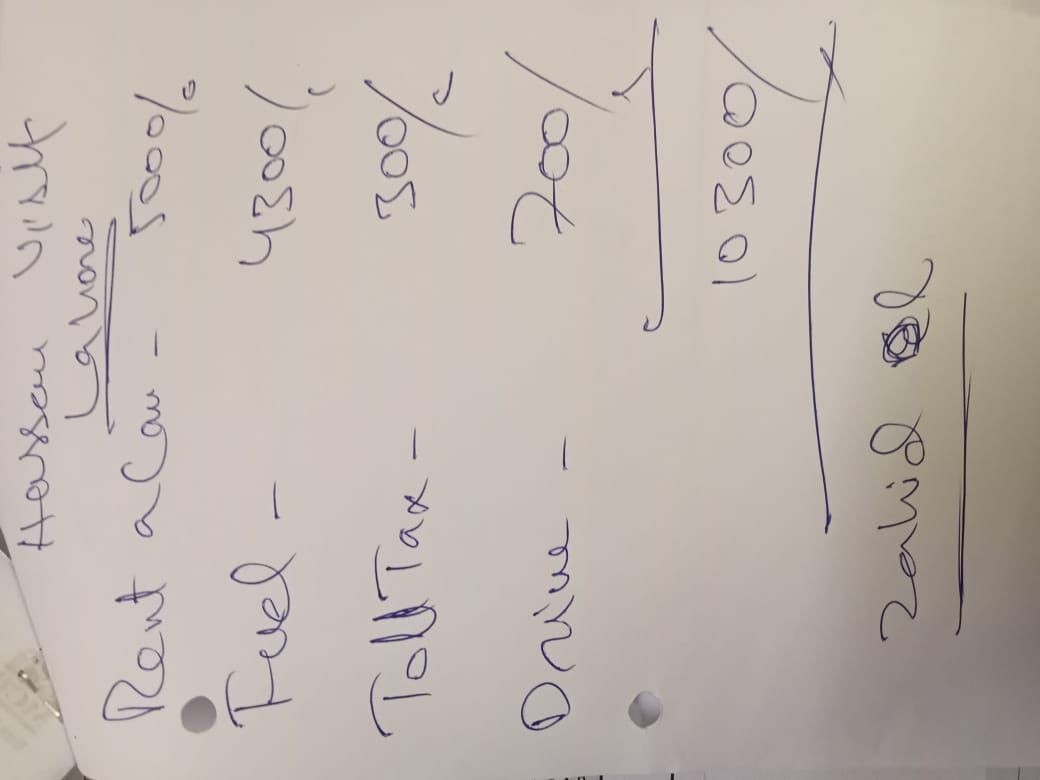 Hassan visit
Lahore
Rent a Car - 5000/
Fuel - 4300/
Toll Tax - 300/
Drive - 700/
10300/
Zahid